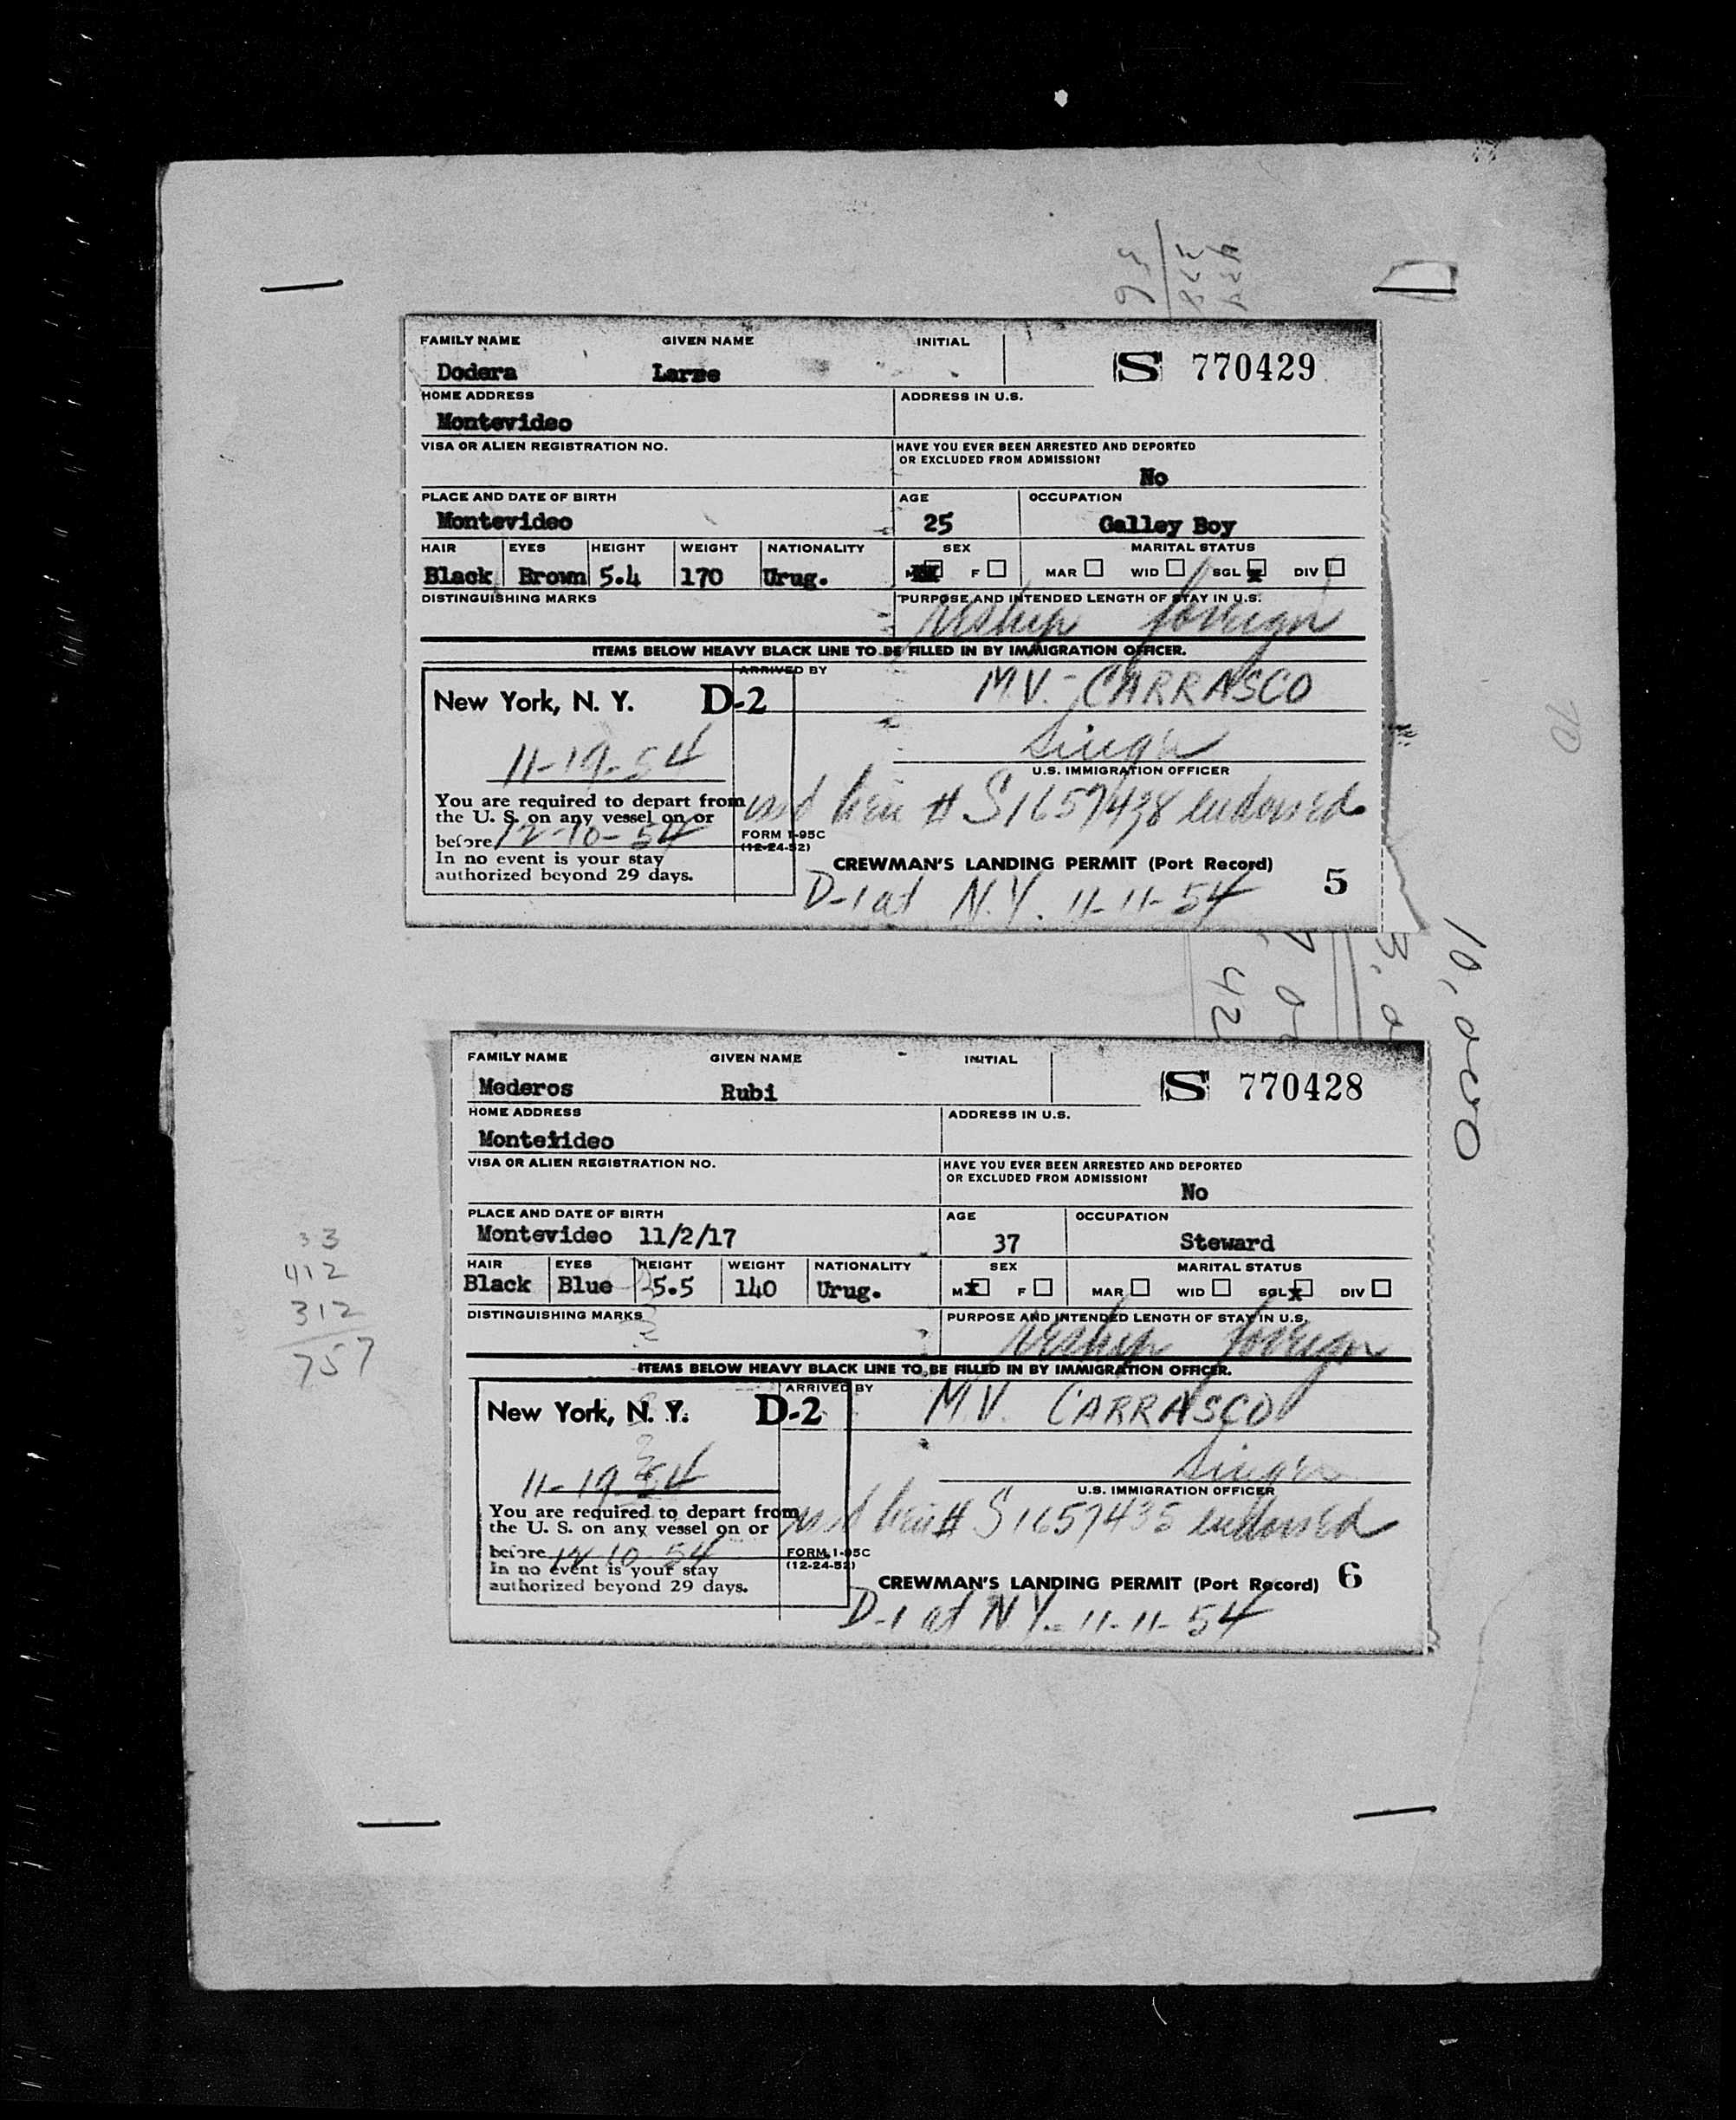 FAMILY NAME GIVEN NAME INITIAL
S 770429
Dodera
HOME ADDRESS ADDRESS IN U.S.
Montevideo
VISA OR ALIEN REGISTRATION NO. HAVE YOU EVER BEEN ARRESTED AND DEPORTED
OR EXCLUDED FROM ADMISSION?
No
PLACE AND DATE OF BIRTH AGE OCCUPATION
Montevideo 25 Galley Boy
HAIR EYES HEIGHT WEIGHT NATIONALITY SEX MARITAL STATUS
Black Brown 5.4 170 Urug. M F MAR WID SGL X DIV
DISTINGUISHING MARKS PURPOSE AND INTENDED LENGTH OF STAY IN U.S.
reship foreign
ITEMS BELOW HEAVY BLACK LINE TO BE FILLED IN BY IMMIGRATION OFFICER.
ARRIVED BY
New York, N. Y. D-2 M.V. - CARRASCO
11-19-54
U.S. IMMIGRATION OFFICER
You are required to depart from
the U. S. on any vessel on or
# S1657438 endorsed
before 12-10-54
FORM I-95C
(12-24-52)
In no event is your stay
authorized beyond 29 days.
CREWMAN'S LANDING PERMIT (Port Record)
5
D-1 at N.Y. 11-11-54
10,000
70
FAMILY NAME GIVEN NAME INITIAL
S 770428
Mederos Rubi
HOME ADDRESS ADDRESS IN U.S.
Montevideo
VISA OR ALIEN REGISTRATION NO. HAVE YOU EVER BEEN ARRESTED AND DEPORTED
OR EXCLUDED FROM ADMISSION?
No
PLACE AND DATE OF BIRTH AGE OCCUPATION
Montevideo 11/2/17 37 Steward
HAIR EYES HEIGHT WEIGHT NATIONALITY SEX MARITAL STATUS
Black Blue 5.5 140 Urug. M X F MAR WID SGL X DIV
DISTINGUISHING MARKS PURPOSE AND INTENDED LENGTH OF STAY IN U.S.
reship foreign
ITEMS BELOW HEAVY BLACK LINE TO BE FILLED IN BY IMMIGRATION OFFICER.
ARRIVED BY
New York, N. Y. D-2 M.V. CARRASCO
11-19-54
U.S. IMMIGRATION OFFICER
You are required to depart from
the U. S. on any vessel on or
# S1657435 endorsed
before 12-10-54
FORM I-95C
(12-24-52)
In no event is your stay
authorized beyond 29 days.
CREWMAN'S LANDING PERMIT (Port Record) 6
D-1 at N.Y. 11-11-54
33
412
312
757